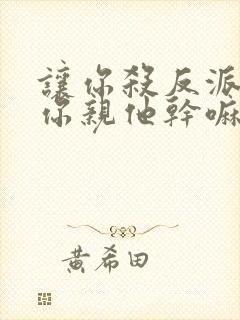 讓你殺反派
你親他幹嘛
黃希田